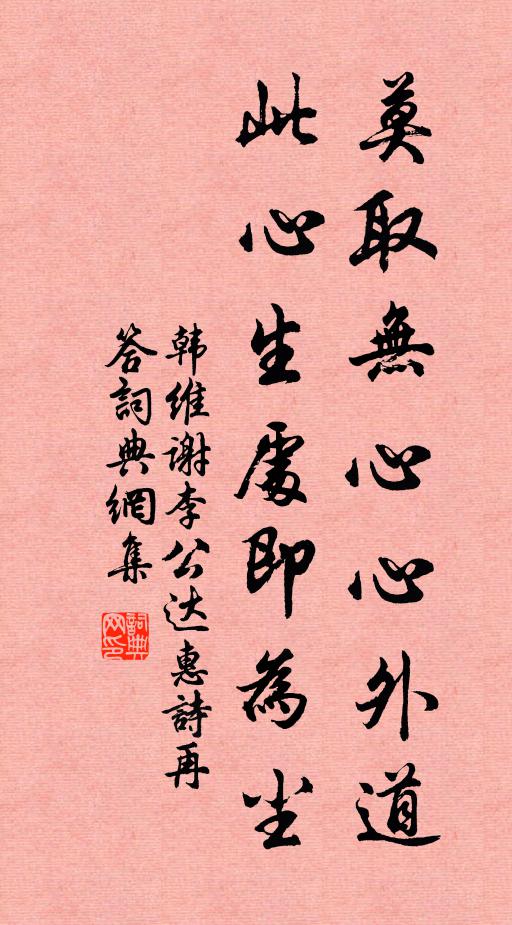 莫取無心心外道
此心生處即為尘
韩維謝李公达惠詩再
答詞典網集
詞典网印